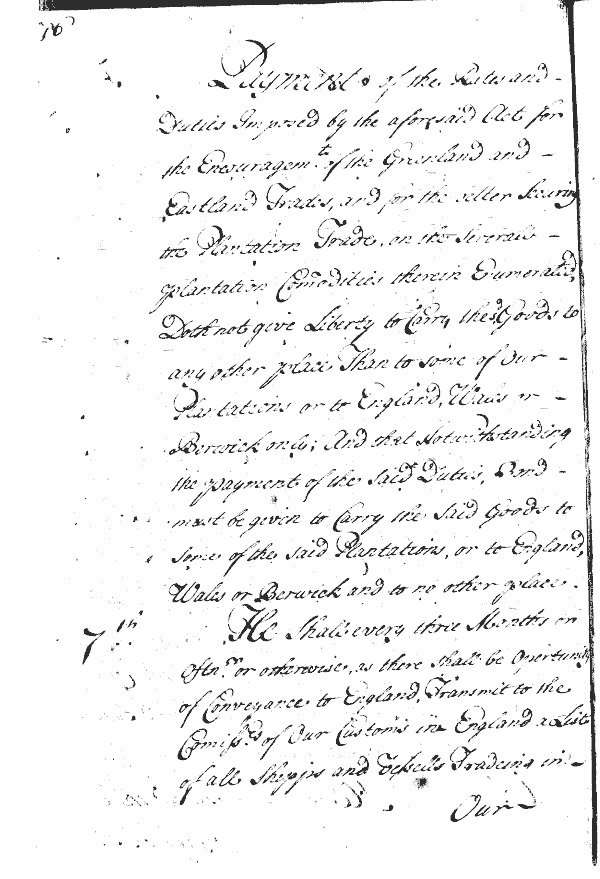 Payment of the Rates and
Duties Imposed by the aforesaid Act for
the Encouragemt. of the Greenland and
Eastland Trades, and for the better Securing
the Plantation Trade, on the Severall
plantation Comodities therein Enumerated,
Doth not give Liberty to Carry thes Goods to
any other place Than to some of Our
Plantations or to England, Wales or
Berwick only; And that Notwithstanding
the payment of the said Duties, Bond
must be given to Carry the said Goods to
some of the said Plantations, or to England,
Wales or Berwick and to no other place.
7th He Shall every three Months or
oftnr. or otherwise, as there shall be Opertunity
of Conveyance to England, Transmit to the
Comissrs of Our Customs in England a List
of all Shipps and Vessells Tradeing in
Our